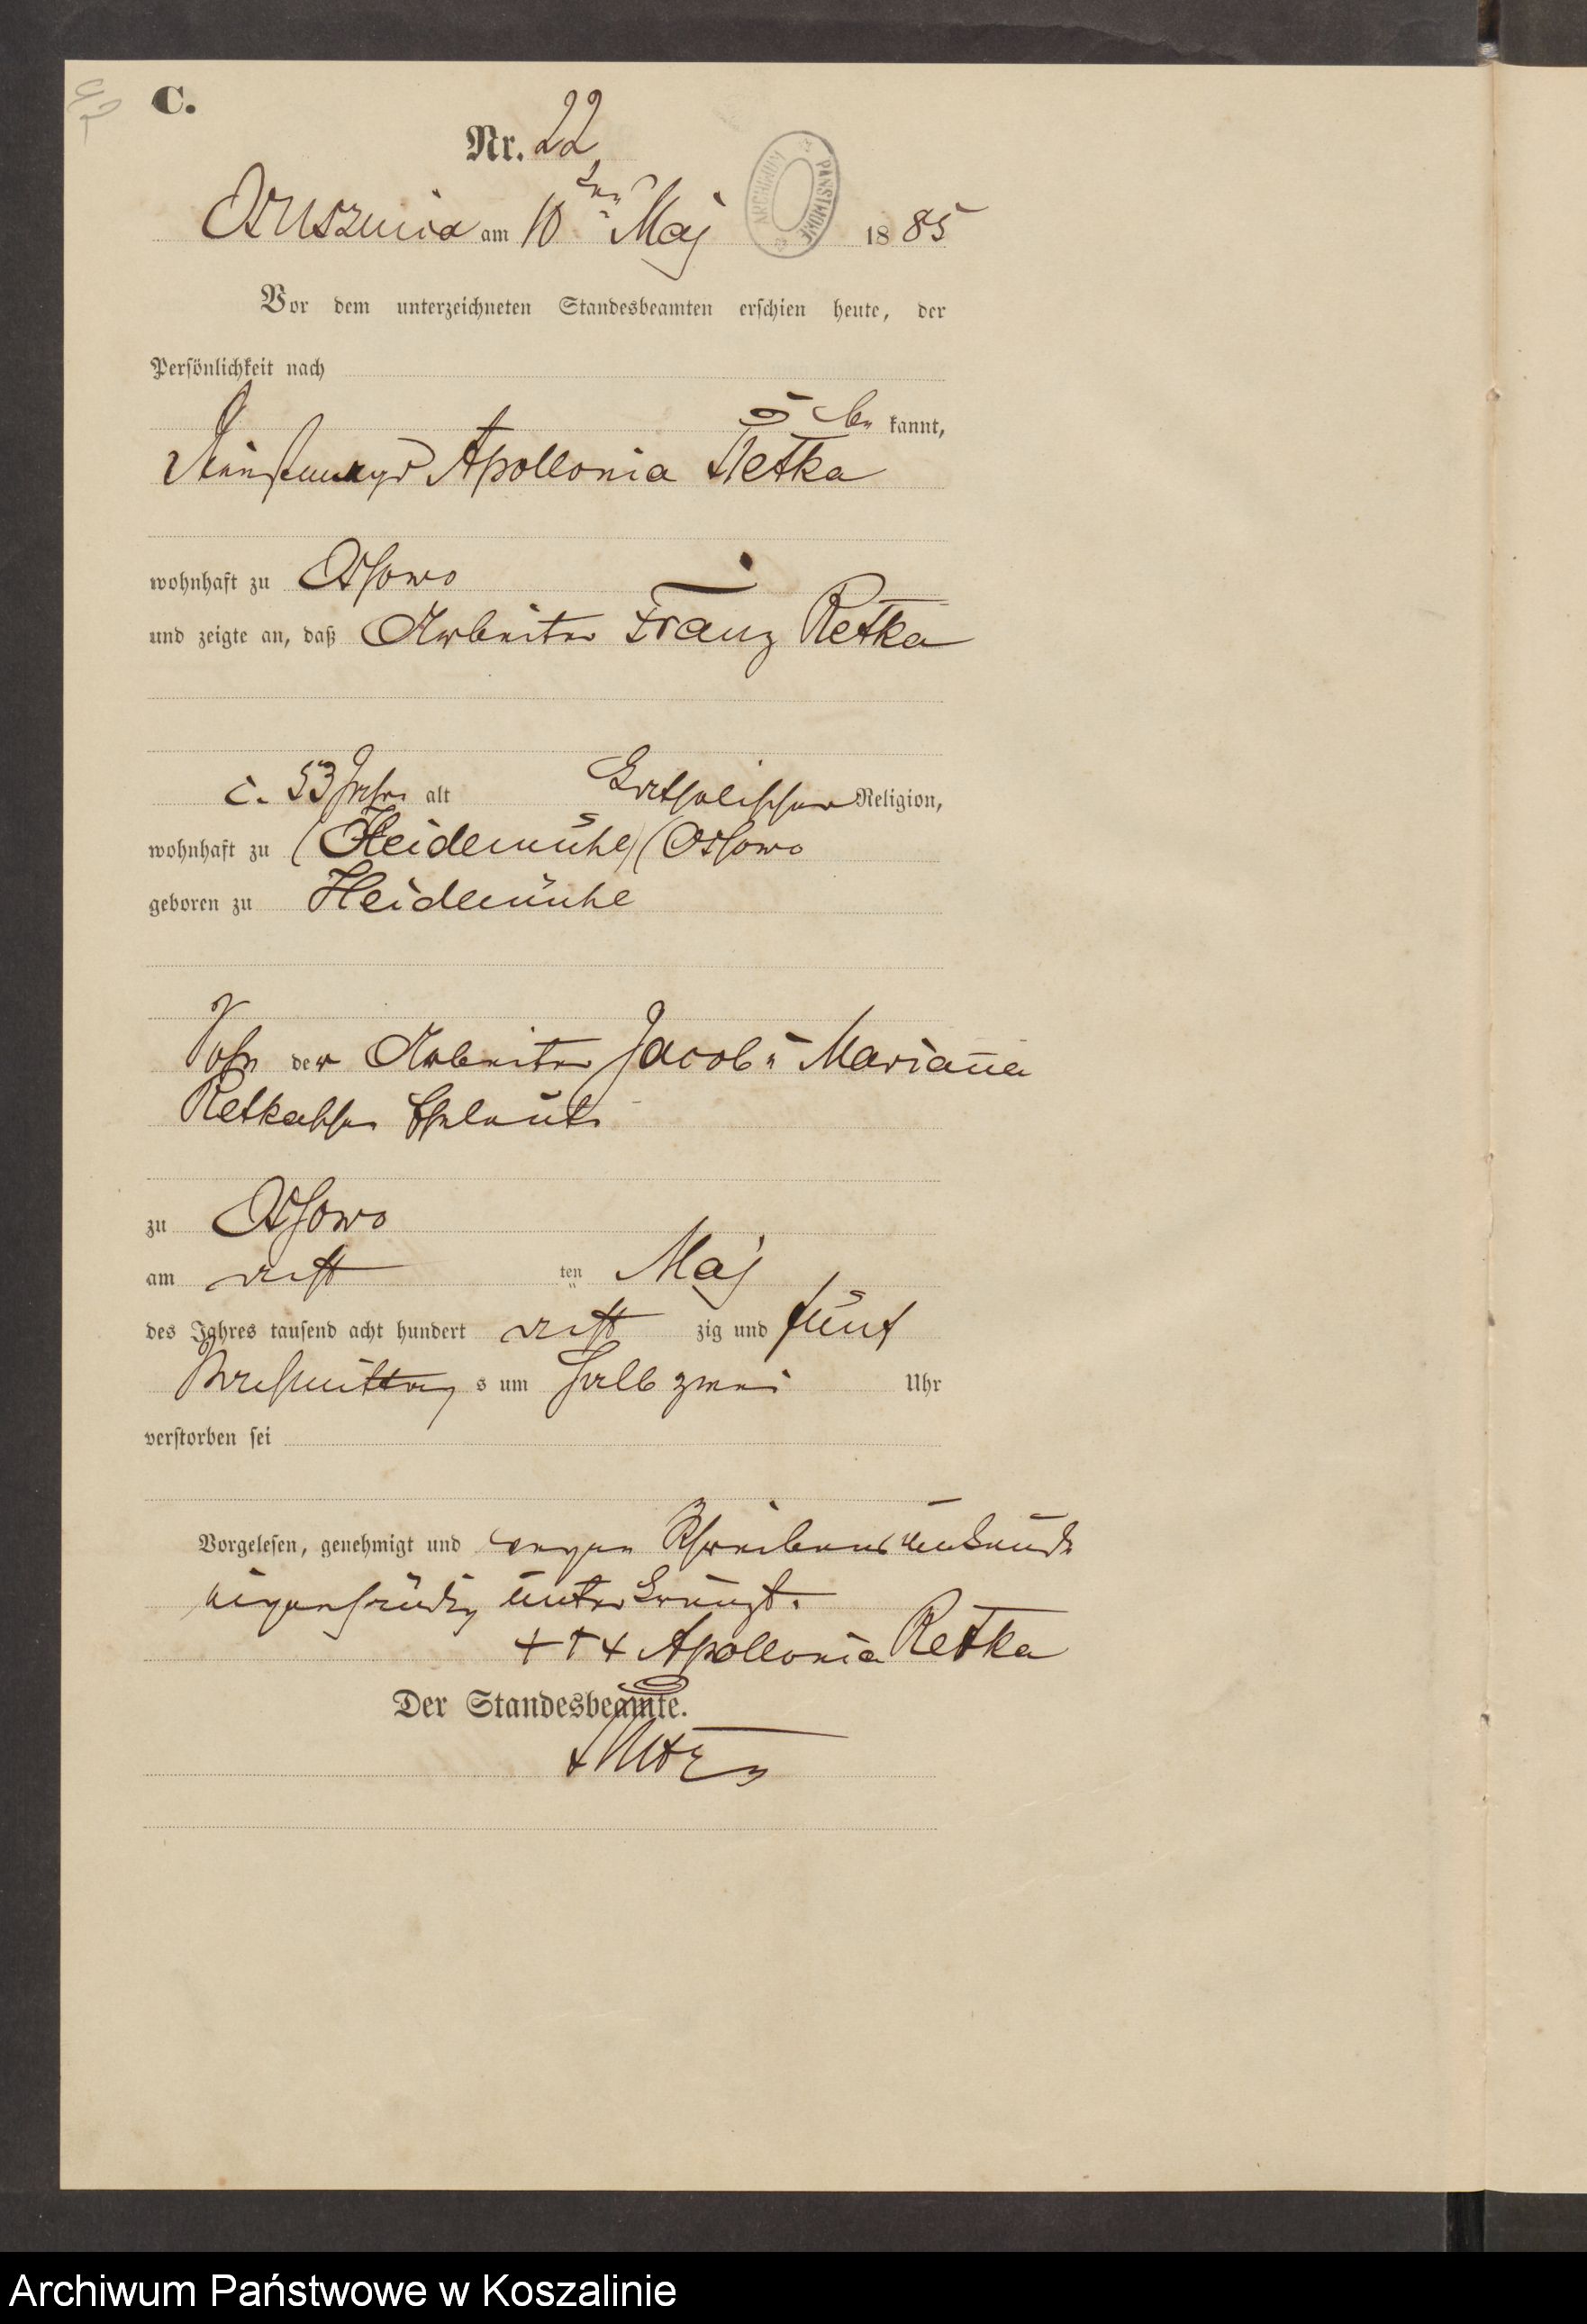 C.
Nr. 22
Osusznica am 10 ten Maj 1885
ARCHIWUM PAŃSTWOWE
Vor dem unterzeichneten Standesbeamten erschien heute, der
Persönlichkeit nach
be kannt,
Apollonia Retka
wohnhaft zu Ossowo
und zeigte an, daß Arbeiter Franz Retka
c. 53 Jahre alt katholischer Religion,
wohnhaft zu (Heidemühl) (Ossowo
geboren zu Heidemühl
Sohn der Arbeiter Jacob u Marianna
Retkaschen Eheleute
zu Ossowo
am acht ten Maj
des Jahres tausend acht hundert acht zig und fünf
Nachmittag s um halb zwei Uhr
verstorben sei
Vorgelesen, genehmigt und wegen Schreibensunkunde
eigenhändig unterkreuzt.
+++ Apollonia Retka
Der Standesbeamte.
Archiwum Państwowe w Koszalinie